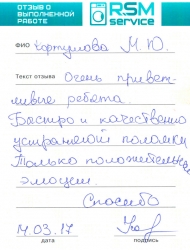 ОТЗЫВ О
ВЫПОЛНЕННОЙ
РАБОТЕ
RSM
service
ФИО Чортулова М. Ю.
Текст отзыва Очень привет-
ливые ребята.
Быстро и качественно
устраняют поломки
Только положительные
эмоции.
Спасибо
7.03.17
дата подпись